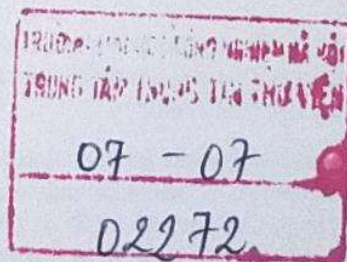 TRƯỜNG ĐẠI HỌC CÔNG NGHIỆP HÀ NỘI
TRUNG TÂM THÔNG TIN THƯ VIỆN
07 - 07
02272